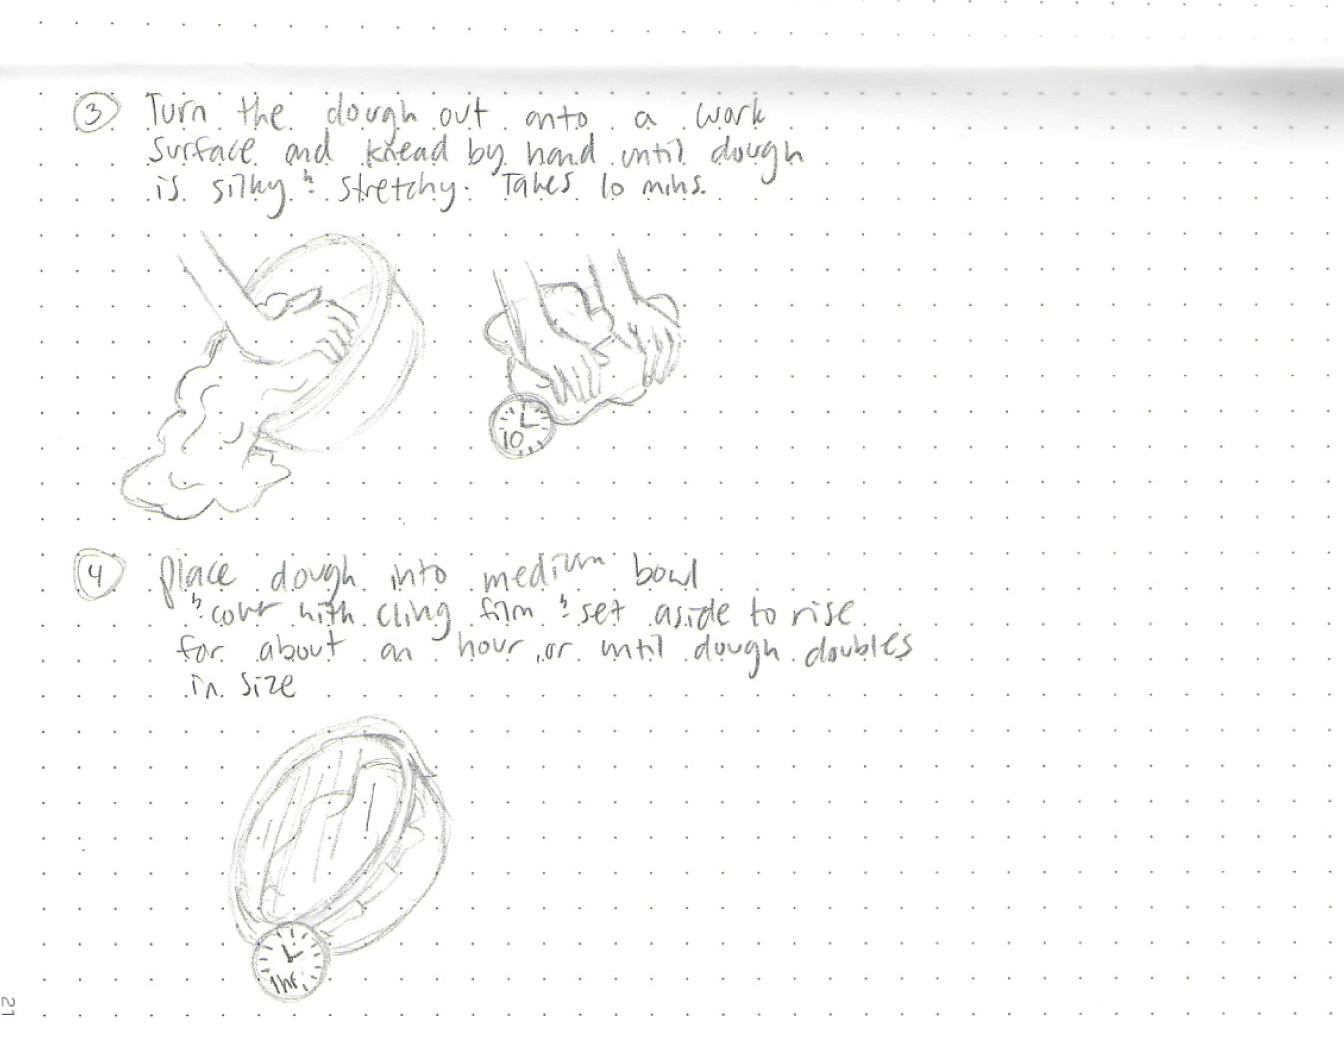 3 Turn the dough out onto a work
surface and knead by hand until dough
is silky & stretchy. Takes 10 mins.
10
4 Place dough into medium bowl
& cover with cling film & set aside to rise
for about an hour, or until dough doubles
in size
1hr
21